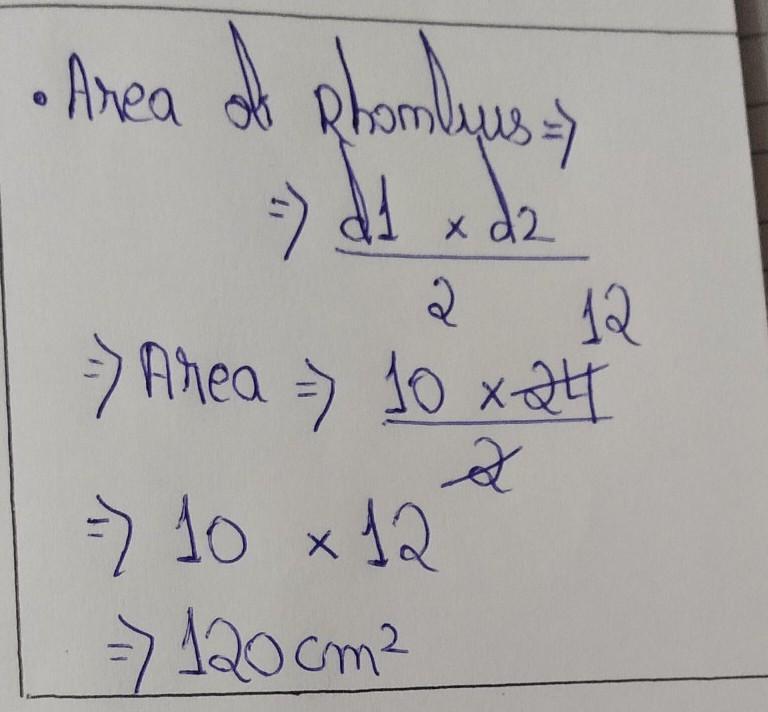 • Area of Rhombus ⇒
⇒ d1 × d2
2
12
⇒ Area ⇒ 10 × 24
2
⇒ 10 × 12
⇒ 120 cm²